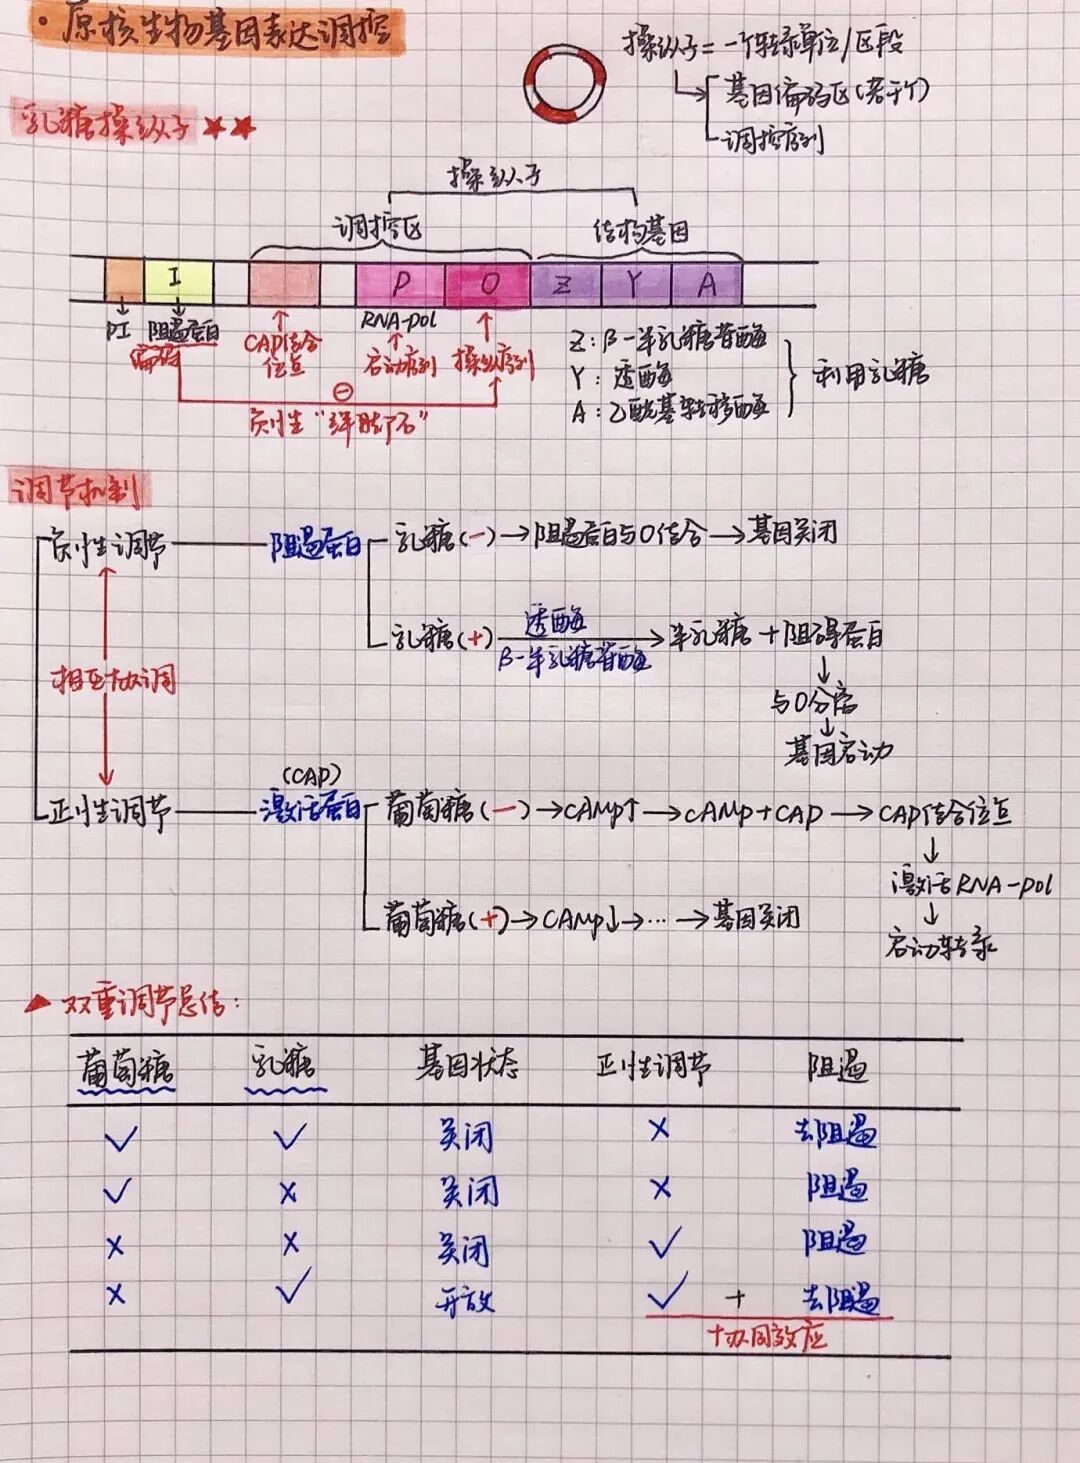 ·原核生物基因表达调控
操纵子=一个转录单位/区段
基因编码区(若干个)
调控序列
乳糖操纵子 ★★
操纵子
调控区 结构基因
I P O Z Y A
PI 阻遏蛋白 CAP结合位点 RNA-pol
编码 启动序列 操纵序列
⊖
负性"绊脚石"
Z:β-半乳糖苷酶
Y:透酶
A:乙酰基转移酶
利用乳糖
调节机制
负性调节 阻遏蛋白 乳糖(-)→阻遏蛋白与O结合→基因关闭
乳糖(+) 透酶 β-半乳糖苷酶 → 半乳糖+阻碍蛋白
↓
与O分离
↓
基因启动
相互协调
(CAP)
正性调节 激活蛋白 葡萄糖(-)→cAmp↑→cAmp+CAP→CAP结合位点
↓
激活RNA-pol
↓
启动转录
葡萄糖(+)→cAmp↓→…→基因关闭
▲双重调节总结:
葡萄糖 乳糖 基因状态 正性调节 阻遏
✓ ✓ 关闭 × 去阻遏
✓ × 关闭 × 阻遏
× × 关闭 ✓ 阻遏
× ✓ 开放 ✓ + 去阻遏
协同效应